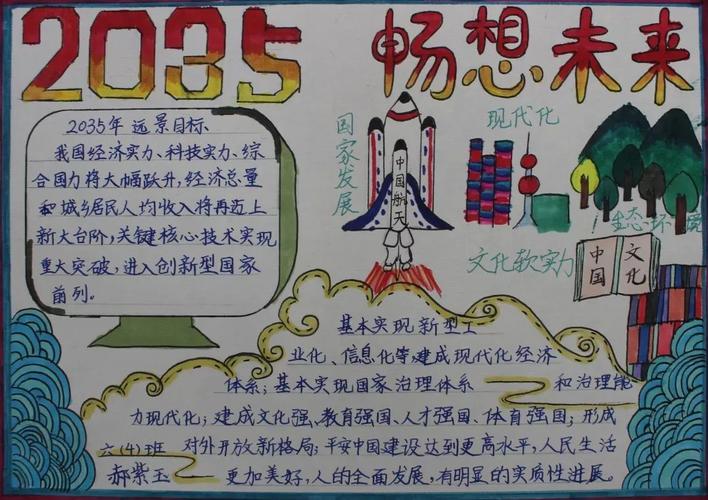 2035 畅想未来
2035年远景目标、
我国经济实力、科技实力、综
合国力将大幅跃升,经济总量
和城乡居民人均收入将再迈上
新大台阶,关键核心技术实现
重大突破,进入创新型国家
前列。
国家发展
中国航天
现代化
生态环境
!
文化软实力
中国
文化
基本实现新型工
业化、信息化等,建成现代化经济
体系;基本实现国家治理体系 和治理能
力现代化;建成文化强、教育强国、人才强国、体育强国;形成
对外开放新格局;平安中国建设达到更高水平,人民生活
更加美好,人的全面发展,有明显的实质性进展。
六(4)班
郝紫玉